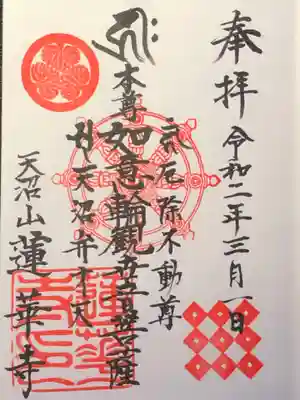 奉拝 令和二年三月一日
厄除不動尊
本尊 如意輪観世音菩薩
天沼弁才天
天沼山 蓮華寺